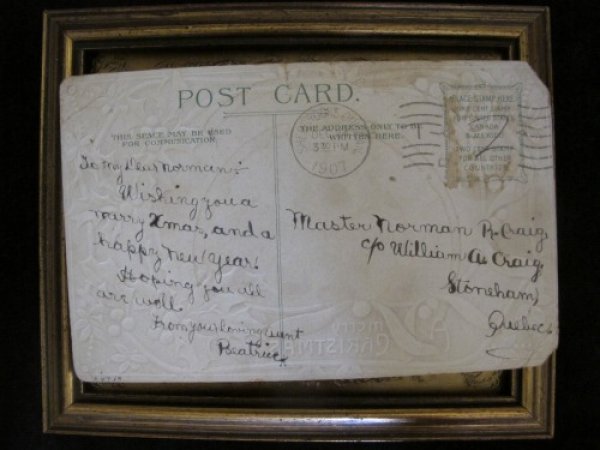 POST CARD.
THIS SPACE MAY BE USED
FOR COMMUNICATION.
THE ADDRESS ONLY TO BE
WRITTEN HERE.
To my Dear Norman:-
Wishing you a
merry Xmas, and a
happy New Year.
Hoping you all
are well
From your loving Aunt
Beatrice
3 30 PM
1907
PLACE STAMP HERE
FOR ALL OTHER
COUNTRIES
Master Norman R. Craig,
c/o William A. Craig,
Stoneham,
Quebec
CHRISTMAS